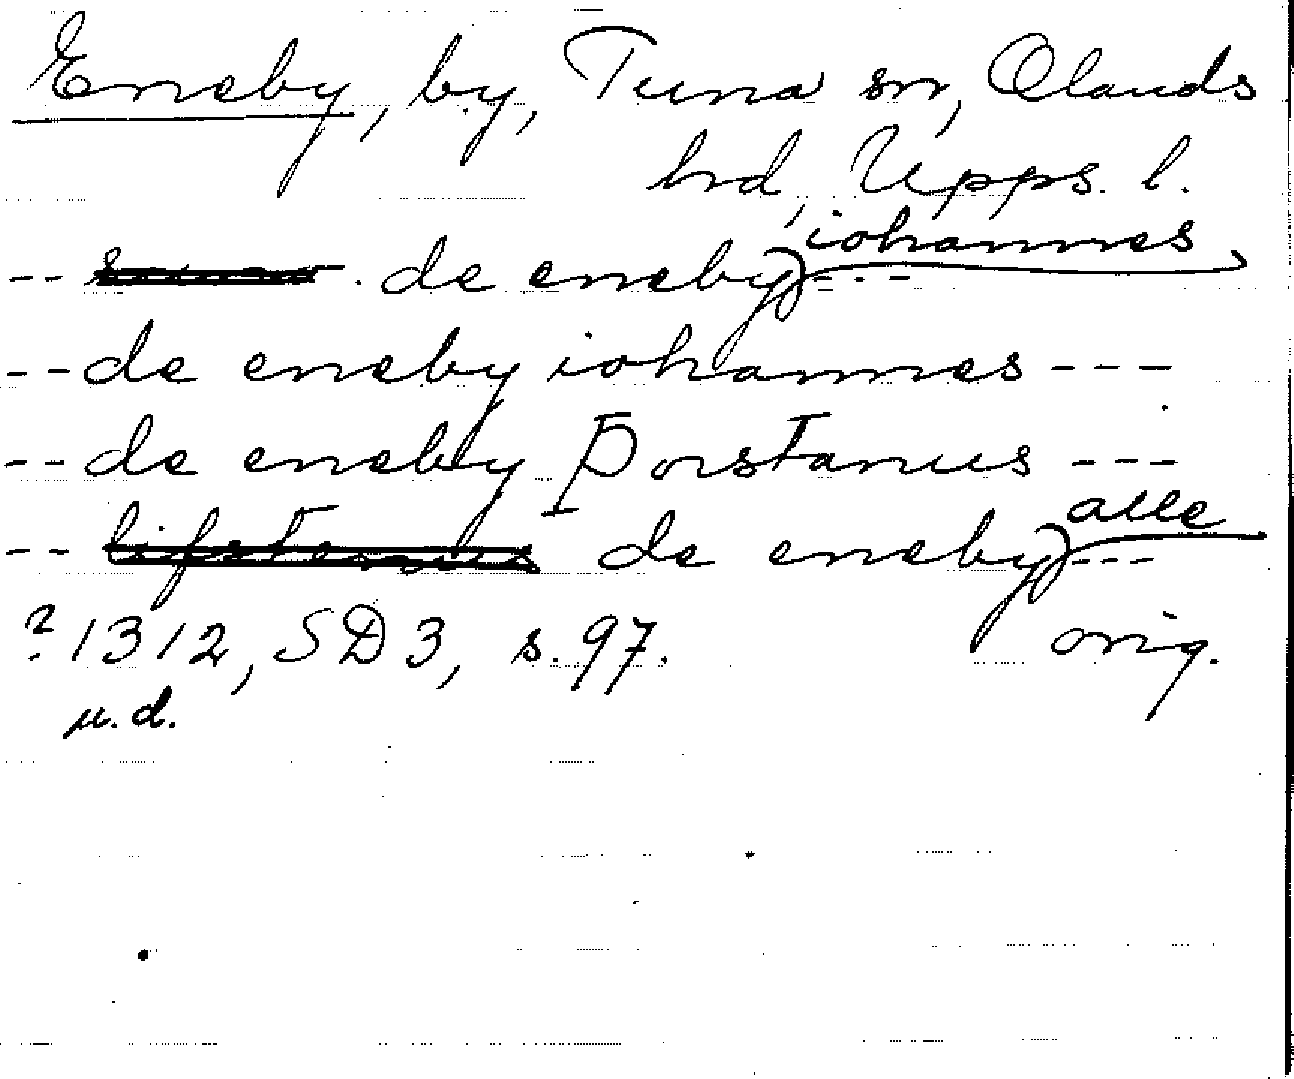 Eneby, by, Tuna sn, Olands
hrd, Upps. l.
-- de eneby) iohannes ---
-- de eneby iohannes ---
-- de eneby Þorstanus ---
-- lifstenus de eneby) alle ---
? 1312, SD 3, s. 97. orig.
u. d.